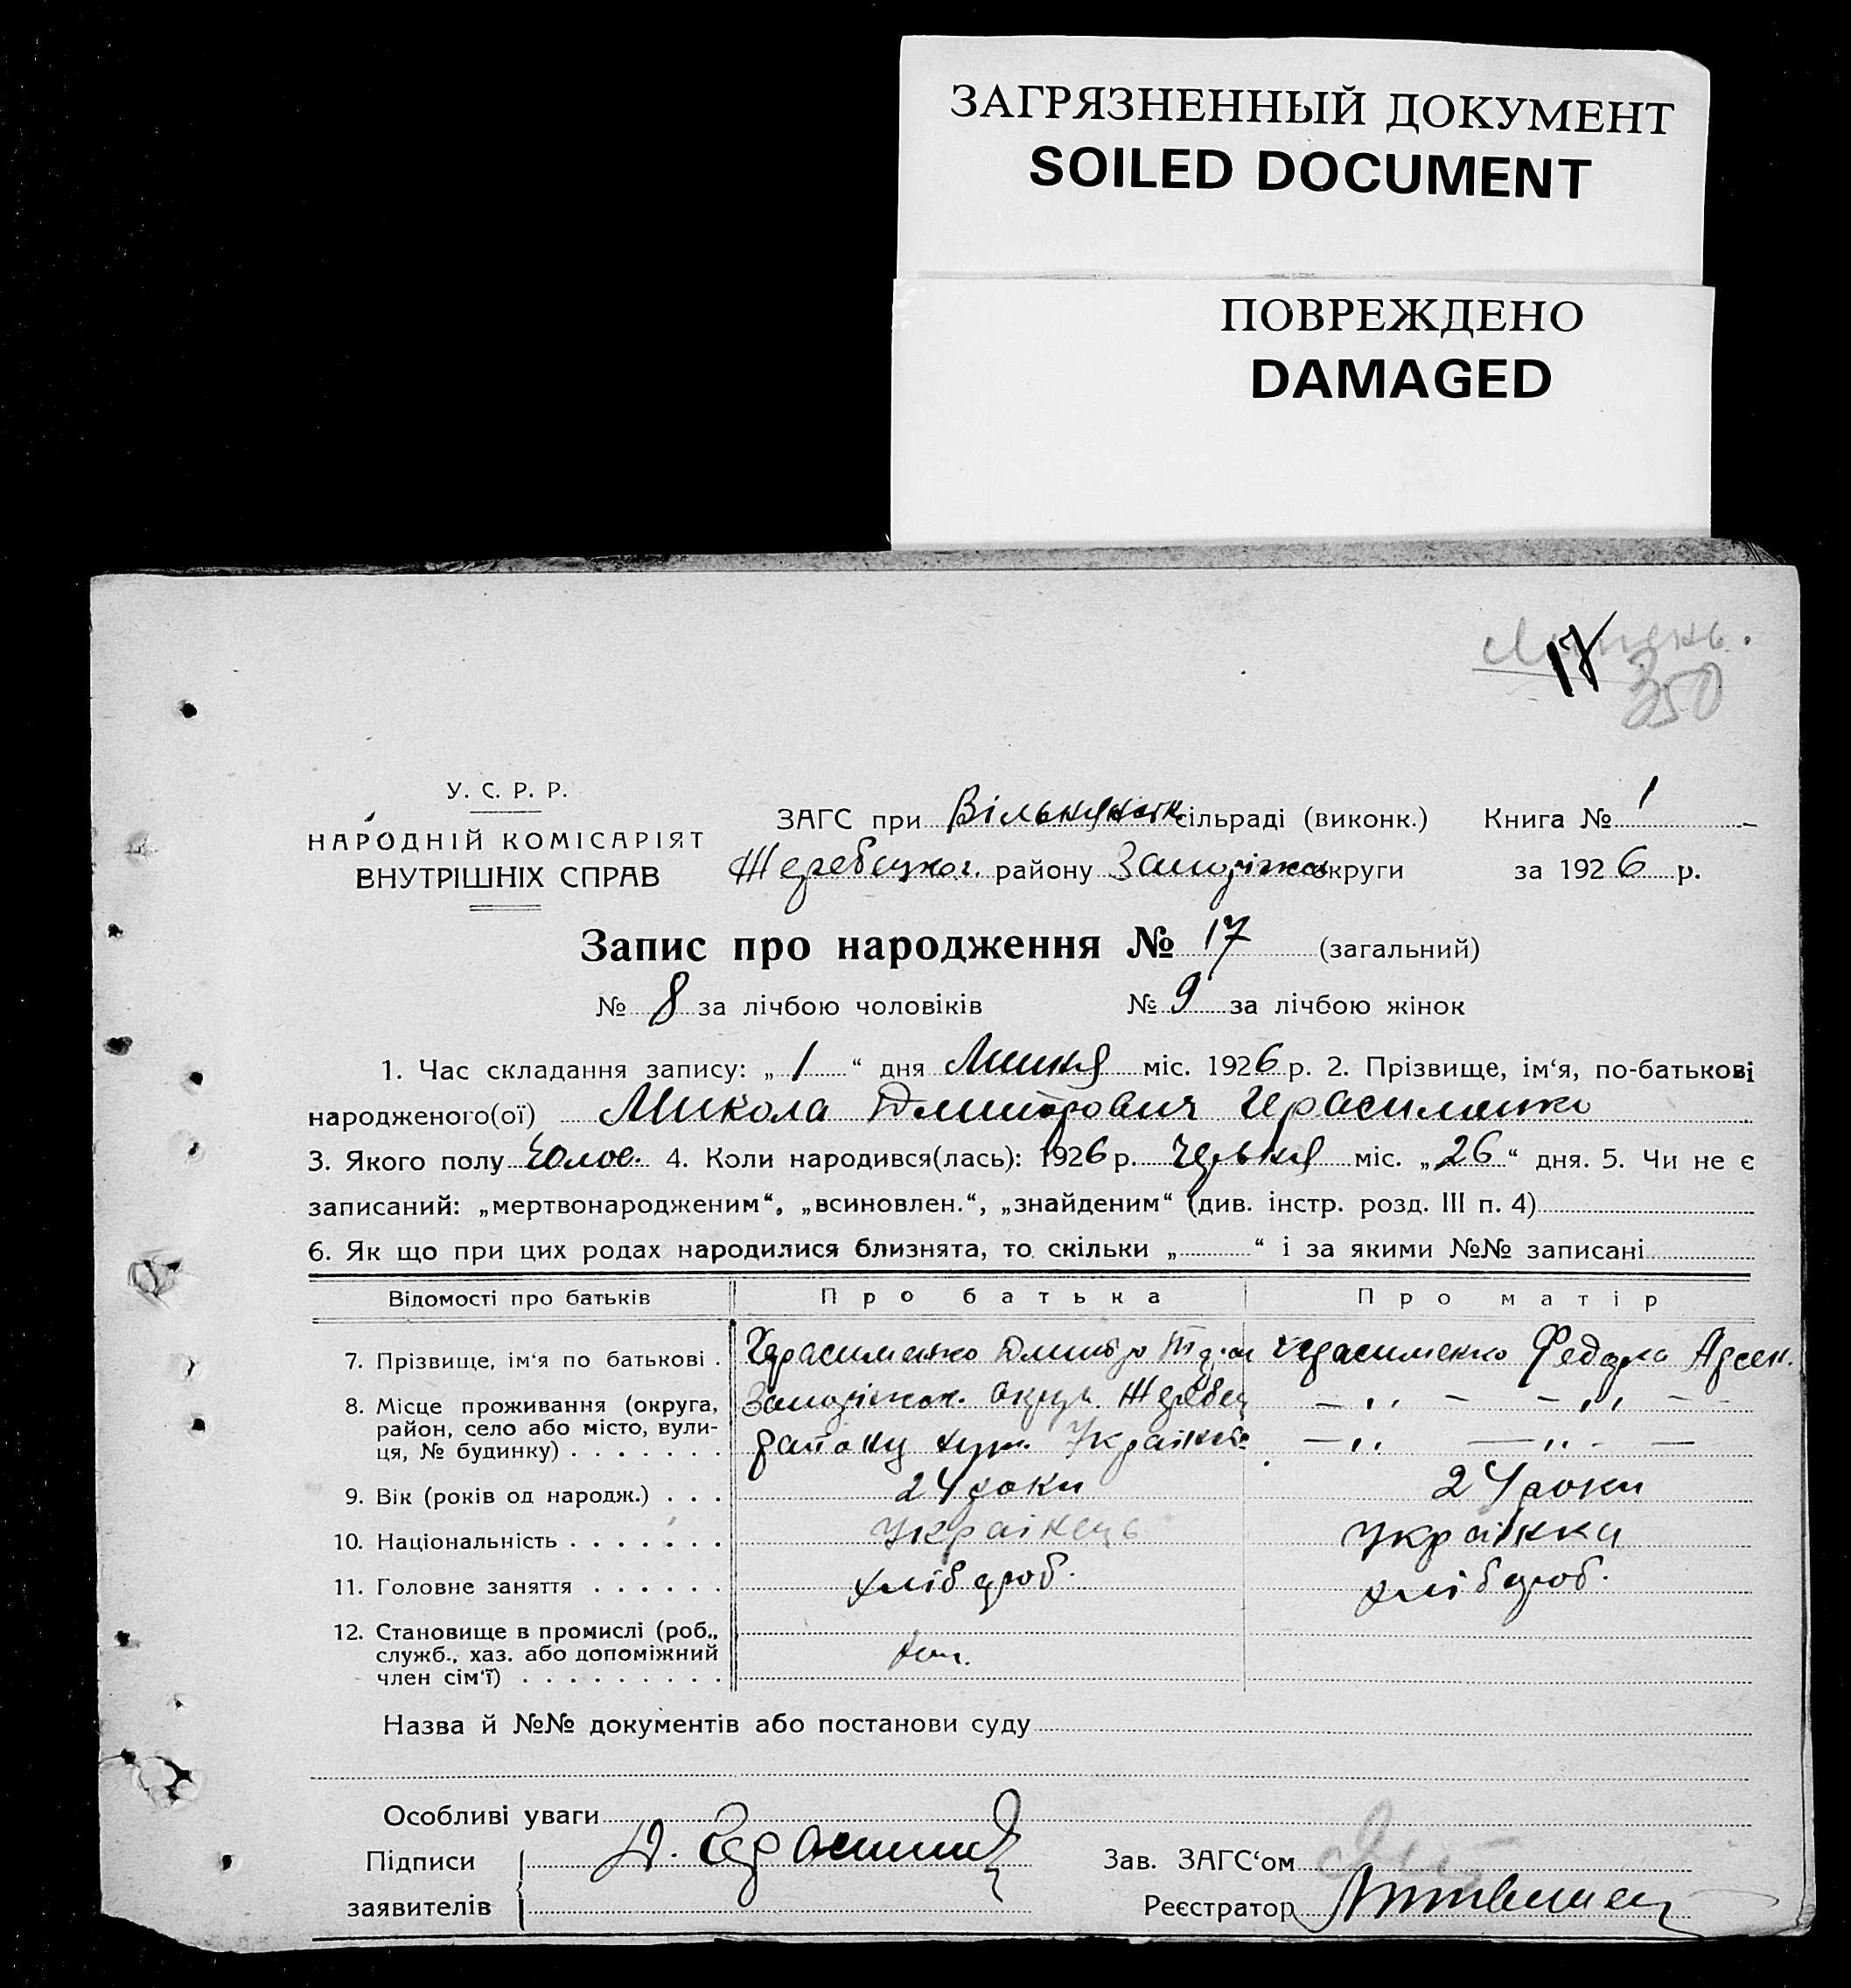 ЗАГРЯЗНЕННЫЙ ДОКУМЕНТ
SOILED DOCUMENT
ПОВРЕЖДЕНО
DAMAGED
17
350
У. С. Р. Р.
НАРОДНІЙ КОМІСАРІЯТ
ВНУТРІШНІХ СПРАВ
ЗАГС при сільраді (виконк.) Книга № 1
Жеребецког. району Запоріжс округи за 1926 р.
Запис про народження № 17 (загальний)
№ 8 за лічбою чоловіків № 9 за лічбою жінок
1. Час складання запису: „ 1 “ дня Липня міс. 1926 р. 2. Прізвище, ім‘я, по-батькові
народженого(ої) Микола Дмитрович Герасименко
3. Якого полу Чолов. 4. Коли народився(лась): 1926 р. Червня міс. „26“ дня. 5. Чи не є
записаний: „мертвонародженим“, „всиновлен.“, „знайденим“ (див. інстр. розд. III п. 4)
6. Як що при цих родах народилися близнята, то скільки „ “ і за якими №№ записані
Відомості про батьків Про батька Про матір
7. Прізвище, ім‘я по батькові . Герасименко Дмитро Герасименко Федора Арсен.
8. Місце проживання (округа, Запоріжск. округ. Жеребец — „ — — „ — —
район, село або місто, вули- району хут. — „ — „ — —
ця, № будинку) . . . . . . .
9. Вік (років од народж.) . . . 24 роки 24 роки
10. Національність . . . . . . . Українець Українка
11. Головне заняття . . . . . . хлібороб. хлібороб.
12. Становище в промислі (роб.,
служб., хаз. або допоміжний
член сім‘ї) . . . . . . . . .
Назва й №№ документів або постанови суду
Особливі уваги
Підписи Д. Зав. ЗАГС‘ом
заявителів Реєстратор